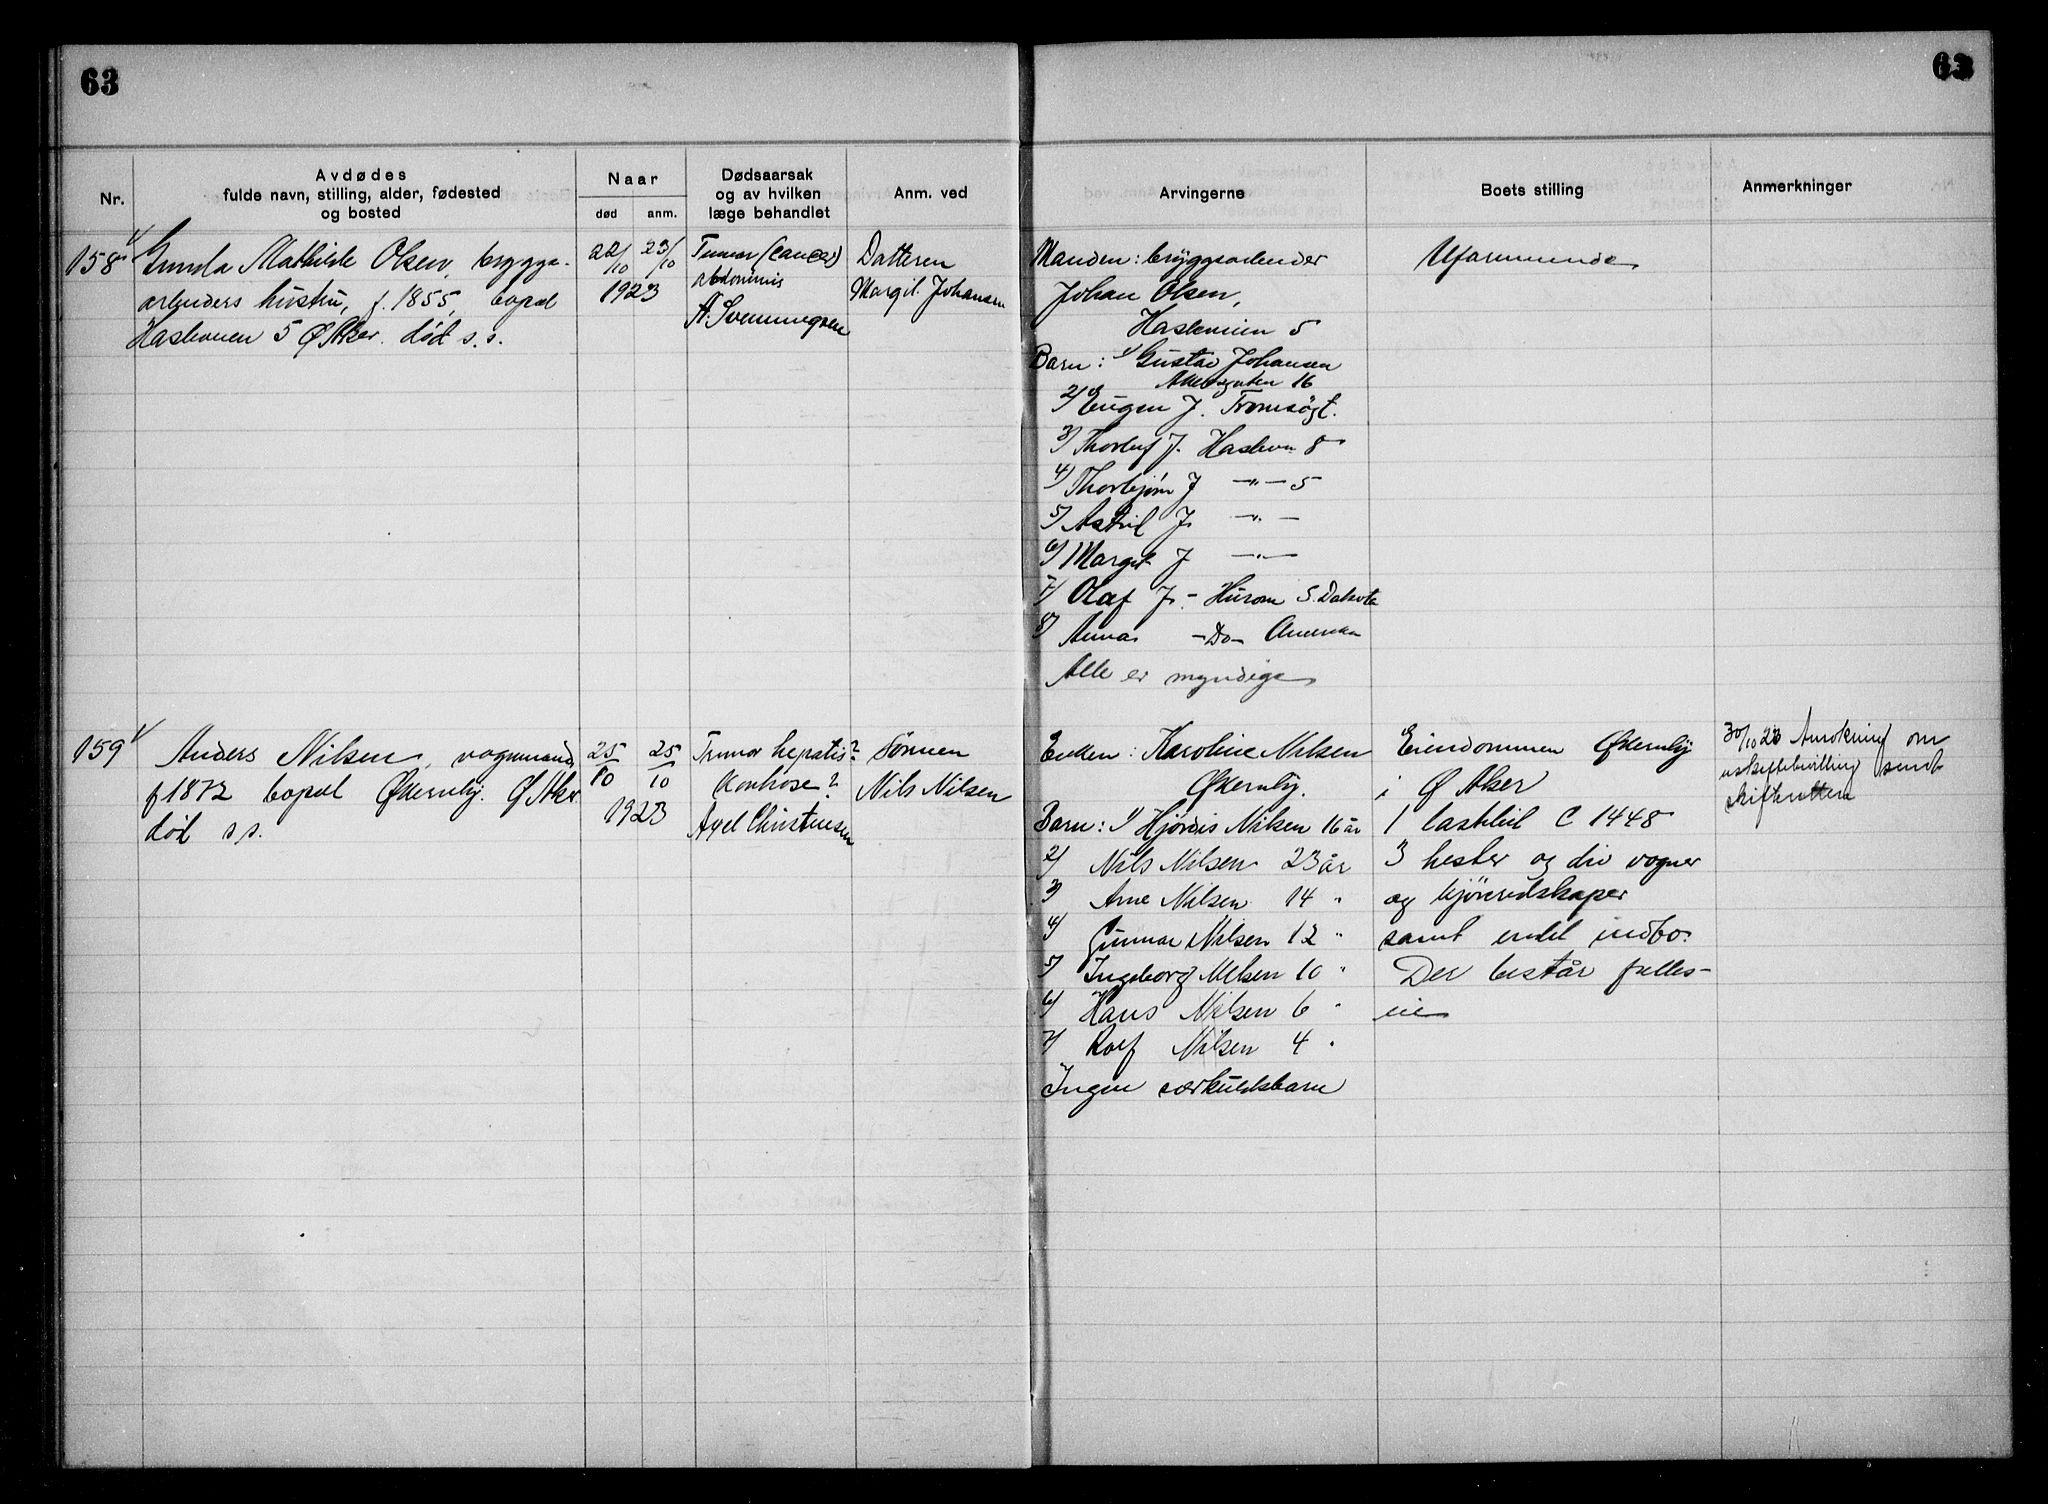 63
63
Nr.
Avdødes
fulde navn, stilling, alder, fødested
og bosted
Naar
død
anm.
Dødsaarsak
og av hvilken
læge behandlet
Anm. ved
Arvingerne
Boets stilling
Anmerkninger
158
Gunda Mathilde Olsen, brygge-
arbeiders hustru, f. 1855, bopæl
5 Ø Aker. død s. s.
22/10
23/10
1923
Tumor (cancer)
abdominis
Datteren
Margit Johansen
Manden: bryggearbeider
Johan Olsen,
5
Barn: 1/ Gustav Johansen
16
2/ Eugen J. Tromsøgt.
3/ Thorleif J. 8
4/ Thorbjørn J —"— 5
5/ Astrid J. —"—
6/ Margit J —"—
7/ Olaf J. - S. Dakota
8/ Anna —Do— Amerika
Alle er myndige
Uformuende
159
Anders Nilsen, vognmand,
f 1872 bopæl Økernby. Ø Aker
død s s.
25/10
25/10
1923
Tumor hepatis?
Axel Christensen
Sønnen
Nils Nilsen
Enken: Karoline Nilsen
Økernby.
Barn: 1/ Hjørdis Nilsen 16 år
2/ Nils Nilsen 23 år
3/ Arne Nilsen 14 "
4/ Gunnar Nilsen 12 "
5/ Ingeborg Nilsen 10 "
6/ Hans Nilsen 6 "
7/ Rolf Nilsen 4 "
Ingen særkuldsbarn
Eiendommen Økernby
i Ø Aker
1 lastebil C 1448
3 hester og div vogner
og kjøreredskaper
samt endel indbo.
Der består fælles-
eie
30/10 23 Ansøkning om
uskiftebevilling sendt
skifteretten